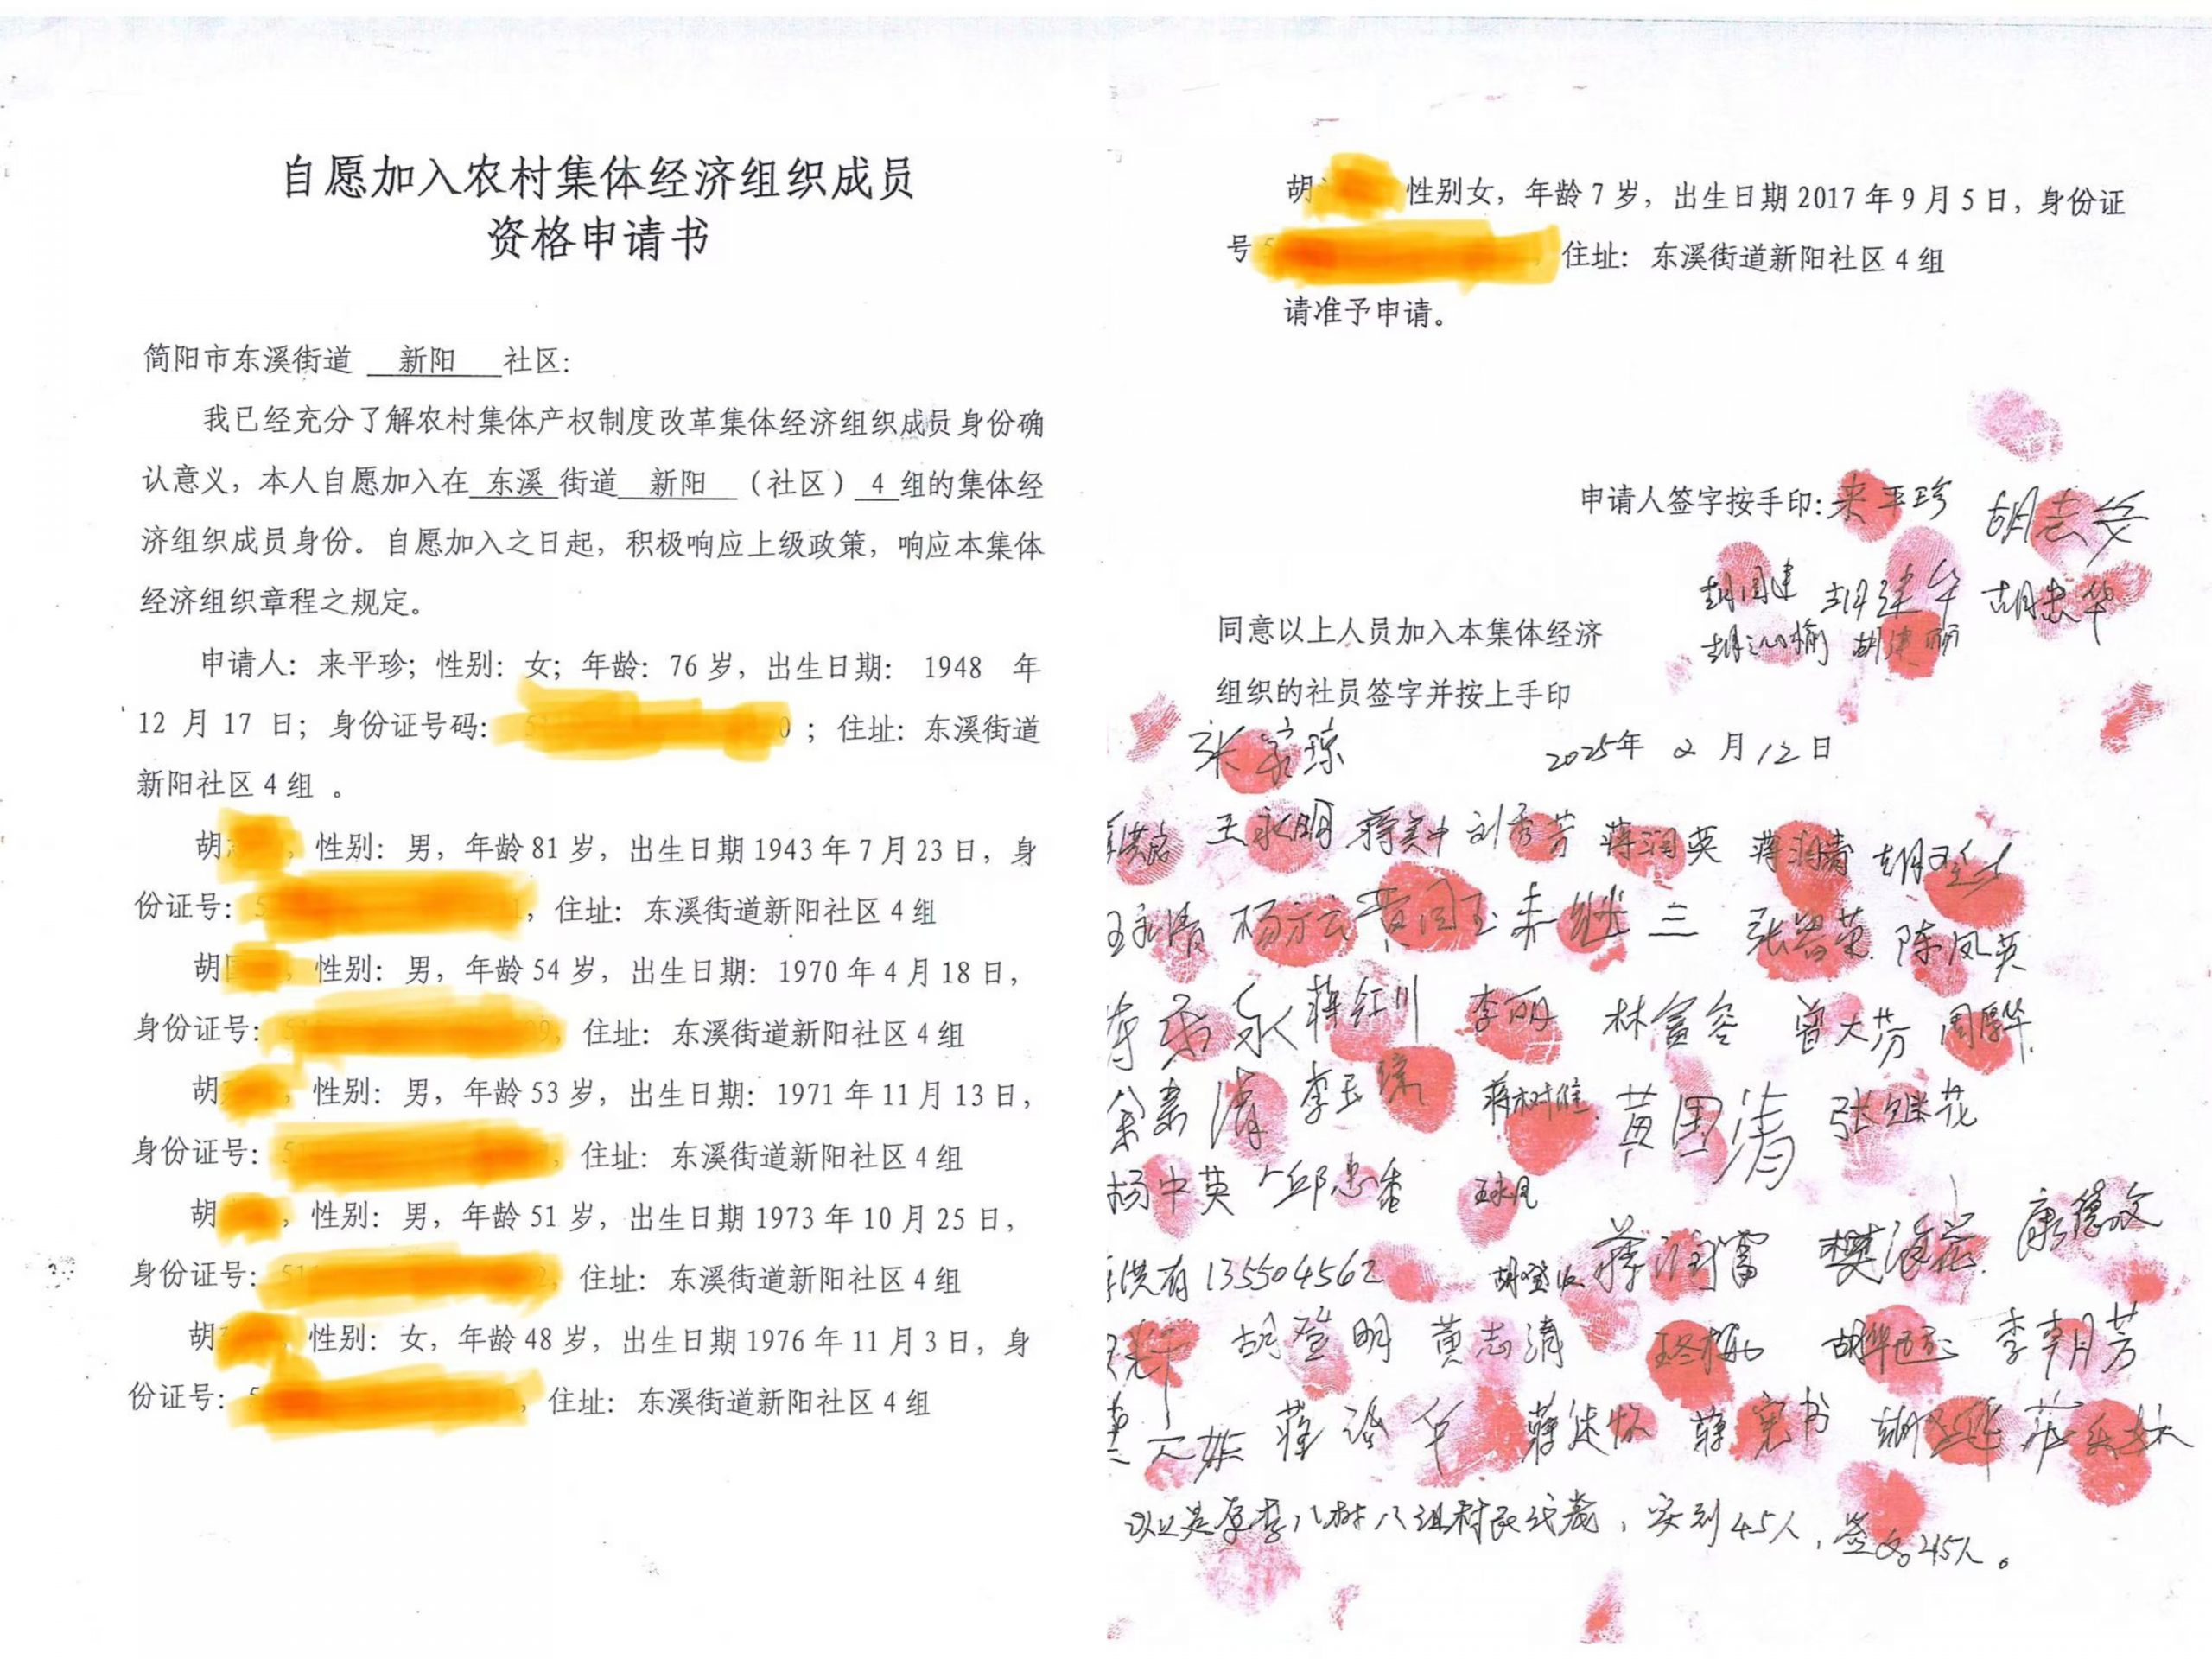 自愿加入农村集体经济组织成员
资格申请书
简阳市东溪街道 新阳 社区：
我已经充分了解农村集体产权制度改革集体经济组织成员身份确
认意义，本人自愿加入在 东溪 街道 新阳 （社区） 4 组的集体经
济组织成员身份。自愿加入之日起，积极响应上级政策，响应本集体
经济组织章程之规定。
申请人：来平珍；性别：女；年龄：76 岁，出生日期： 1948 年
12 月 17 日；身份证号码： ；住址：东溪街道
新阳社区 4 组 。
胡 ，性别：男，年龄 81 岁，出生日期 1943 年 7 月 23 日，身
份证号： ，住址：东溪街道新阳社区 4 组
胡 ，性别：男，年龄 54 岁，出生日期：1970 年 4 月 18 日，
身份证号： ，住址：东溪街道新阳社区 4 组
胡 ，性别：男，年龄 53 岁，出生日期：1971 年 11 月 13 日，
身份证号： ，住址：东溪街道新阳社区 4 组
胡 ，性别：男，年龄 51 岁，出生日期 1973 年 10 月 25 日，
身份证号： ，住址：东溪街道新阳社区 4 组
胡 ，性别：女，年龄 48 岁，出生日期 1976 年 11 月 3 日，身
份证号： ，住址：东溪街道新阳社区 4 组
胡 性别女，年龄 7 岁，出生日期 2017 年 9 月 5 日，身份证
号 住址：东溪街道新阳社区 4 组
请准予申请。
申请人签字按手印：来平珍
胡国建 胡建华 胡忠华
胡沁榆 胡建丽
同意以上人员加入本集体经济
组织的社员签字并按上手印
2025年 2 月 12 日
王永明 刘秀芳 蒋润英 蒋润清
王永清 杨永云 黄国玉 来继三 陈凤英
蒋红川 李丽 林富容 曾大芬 周厚华
余素清 李玉琼 黄国清 张继花
杨中英 邱惠香 王永凤
洪有 135504562 蒋润富 康德文
胡登明 黄志清 王冬梅 李朝芳
蒋宪书
，实到45人，签名45人。